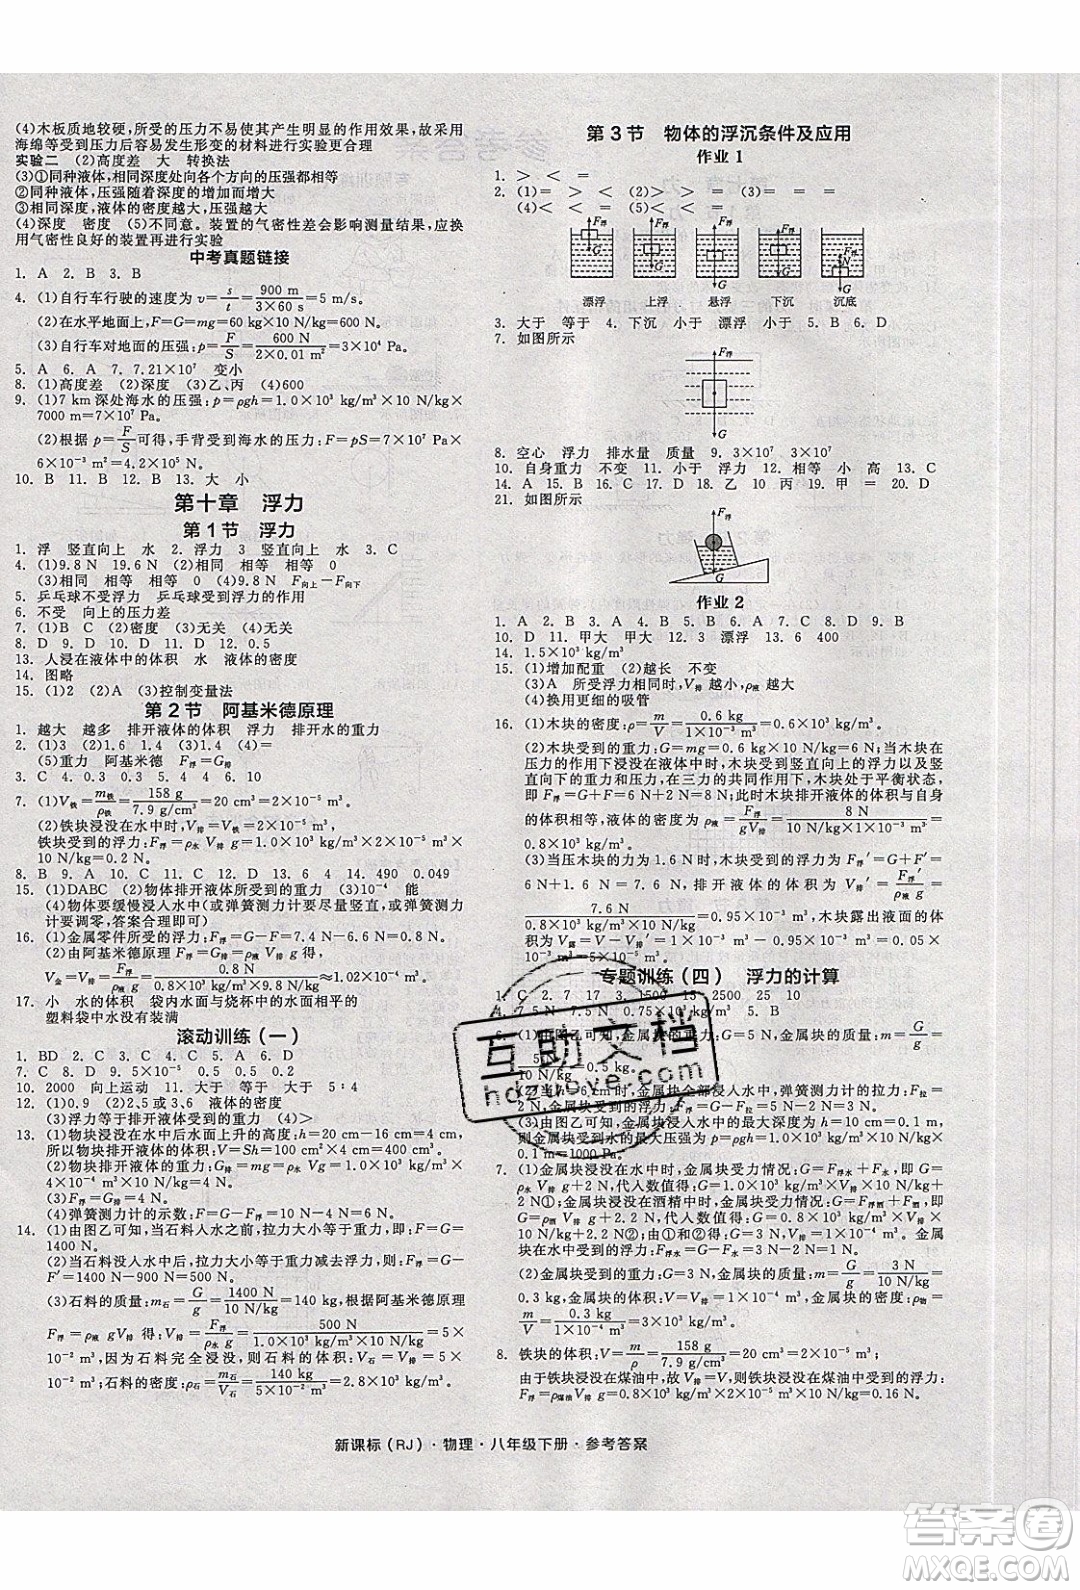 (4)木板质地较硬,所受的压力不易使其产生明显的作用效果,故采用
海绵等受到压力后容易发生形变的材料进行实验更合理
实验二 (2)高度差 大 转换法
(3)①同种液体,相同深处向各个方向的压强都相等
②同种液体,压强随着深度的增加而增大
③相同深度,液体的密度越大,压强越大
(4)深度 密度 (5)不同意。装置的气密性差会影响测量结果,应换
用气密性良好的装置再进行实验
中考真题链接
1. A 2. B 3. B
4. (1)自行车行驶的速度为v=s/t=900 m/(3×60 s)=5 m/s。
(2)在水平地面上,F=G=mg=60 kg×10 N/kg=600 N。
(3)自行车对地面的压强:p=F/S=600 N/(2×0.01 m²)=3×10⁴ Pa。
5. A 6. A 7. 6 变大
8. (1)高度差 (2)深度 (3)乙、丙 (4)600
9. (1)7 km深处海水的压强:p=ρgh=1.0×10³ kg/m³×10 N/kg×
7000 m=7×10⁷ Pa。
(2)根据p=F/S可得,手背受到海水的压力:F=pS=7×10⁷ Pa×
6×10⁻³ m²=4.2×10⁵ N。
10. B 11. B 12. B 13. 大 小
第十章 浮力
第1节 浮力
1. 浮 竖直向上 水 2. 浮力 3 竖直向上 水 3. C
4. (1)9.8 N 19.6 N (2)相同 相等
(3)相同 相等 相等 0 (4)9.8 N F向上-F向下
5. 乒乓球不受浮力 乒乓球受到浮力的作用
6. 不受 向上的压力差
7. (1)B C (2)密度 (3)无关 (4)无关
8. D 9. D 10. D 11. D 12. 0.5
13. 人浸在液体中的体积 水 液体的密度
14. 图略
15. (1)2 (2)A (3)控制变量法
第2节 阿基米德原理
1. 越大 越多 排开液体的体积 浮力 排开水的重力
2. (1)3 (2)1.6 1.4 (3)1.4 (4)=
(5)重力 阿基米德 F浮=G排
3. C 4. 0.3 0.3 5. 4 6. 4 10
7. (1)V铁=m铁/ρ铁=158 g/(7.9 g/cm³)=20 cm³=2×10⁻⁵ m³。
(2)铁块浸没在水中时,V排=V铁=2×10⁻⁵ m³,
铁块受到的浮力:F浮=ρ水 V排 g=1.0×10³ kg/m³×2×10⁻⁵ m³×
10 N/kg=0.2 N。
8. B 9. A 10. C 11. B 12. D 13. 4 14. 490 0.049
15. (1)DABC (2)物体排开液体所受到的重力 (3)1×10⁻⁴ 能
物体要缓慢浸入水中(或弹簧测力计要尽量竖直,或弹簧测力
计要调零,答案合理即可)
16. (1)金属零件所受的浮力:F浮=G-F=7.4 N-6.6 N=0.8 N。
(2)由阿基米德原理F浮=G排=ρ液 V排 g得,
V金=V排=F浮/(ρ液 g)=0.8 N/(0.8×10³ kg/m³×9.8 N/kg)≈1.02×10⁻⁴ m³。
17. 小 水的体积 袋内水面与烧杯中的水面相平的
塑料袋中水没有装满
滚动训练(一)
1. BD 2. C 3. C 4. C 5. A 6. D
7. C 8. D 9. 15 0.5 0.5 0.2
10. 2000 向上运动 11. 大于 等于 大于 5:4
12. (1)0.9 (2)2.5或3.6 液体的密度
(3)浮力等于排开液体受到的重力 (4)>
13. (1)物块浸没在水中后水面上升的高度:h=20 cm-16 cm=4 cm,
所以物块排开液体的体积:V=Sh=100 cm²×4 cm=400 cm³。
(2)物块排开液体的重力:G排=mg=ρ水 Vg=1.0×10³ kg/m³×
4×10⁻⁴ m³×10 N/kg=4 N。
(3)F浮=G排=4 N。
(4)弹簧测力计的示数:F=G-F浮=10 N-4 N=6 N。
14. (1)由图乙可知,当石料入水之前,拉力大小等于重力,即:F=G=
1400 N。
(2)当石料浸没在水中后,拉力大小等于重力减去浮力,即:
F浮=1400 N-900 N=500 N。
(3)石料的质量:m石=G/g=1400 N/(10 N/kg)=140 kg,根据阿基米德原理
F浮=ρ液 gV排 得:V排=F浮/(ρ液 g)=500 N/(1.0×10³ kg/m³×10 N/kg)=5×
10⁻² m³,因为石料完全浸没,则石料的体积V石=V排=5×
10⁻² m³;石料的密度:ρ石=m石/V石=140 kg/(5×10⁻² m³)=2.8×10³ kg/m³。
第3节 物体的浮沉条件及应用
作业1
1. > < =
2. (1)= > < (2)> > = (3)= = =
(4)< < > (5)< < =
F浮 G F浮 G F浮 G F浮 G F浮 N G
漂浮 上浮 悬浮 下沉 沉底
3. 大于 等于 4. 下沉 小于 漂浮 小于 5. B 6. D
7. 如图所示
F浮
G
8. 空心 浮力 排水量 质量 9. 3×10⁷ 3×10⁷
10. 自身重力 不变 11. 小于 12. 相等 小 高 13. C
14. A 15. B 16. C 17. D 18. 乙 10 丙 19. 甲 = 20. 大
21. 如图所示
F浮
G
作业2
1. B 2. C 3. A 4. B 5. B 6. A 7. C 8. D 9. B
10. D 11. 甲大 甲大 = 12. 漂浮 13. 6 400
14. 1.5×10³ kg/m³
15. (1)增加配重 (2)越长 不变
(3)A 所受浮力相同时,V排越小,ρ液越大
(4)换用更细的吸管
16. (1)木块的密度:ρ=m/V=0.6 kg/(1×10⁻³ m³)=0.6×10³ kg/m³。
(2)木块受到的重力:G=mg=0.6 kg×10 N/kg=6 N;当木块
在压力的作用下浸没在液面下时,木块受到竖直向上的浮力以及竖
直向下的重力与压力,在三力的共同作用下,木块处于平衡状态,
即F浮=G+F=6 N+2 N=8 N;此时木块排开液体的体积与自身
的体积相等,故液体的密度:ρ液=F浮/(V排 g)=8 N/(10 N/kg×1×10⁻³ m³)=
0.8×10³ kg/m³。
(3)当压木块的力为1.6 N时,木块所受浮力F浮′=G+F′=
6 N+1.6 N=7.6 N,排开液体的体积为V排′=F浮′/(ρ液 g)=
7.6 N/(0.8×10³ kg/m³×10 N/kg)=0.95×10⁻³ m³,木块露出液面的体
积为V露=V-V排′=1×10⁻³ m³-0.95×10⁻³ m³=5×
10⁻⁵ m³。
专题训练(四) 浮力的计算
1. C 2. 7 17 3. 1500 15 2500 25 10
4. 7.5 N 7.5 N 0.75×10³ kg/m³ 5. B
6. (1)由图乙可知,金属块的重力:G=5 N,金属块的质量:m=G/g=
5 N/(10 N/kg)=0.5 kg。
(2)当h=6 cm时,金属块全部浸入水中,弹簧测力计的拉力:F拉=
2 N,金属块受到的浮力:F浮=G-F拉=5 N-2 N=3 N。
(3)由图乙可知,金属块浸入水中的最大深度为h=10 cm=0.1 m,
金属块受到水的最大压强为p=ρgh=1.0×10³ kg/m³×10 N/kg×
0.1 m=1000 Pa。
7. (1)金属块浸没在水中时,金属块受力情况:G=F浮水+F水,G=
ρ水 V排 g+F水,代入数值得①。
金属块浸没在酒精中时,金属块受力情况:G=F浮酒+F酒,G=
ρ酒 V排 g+F酒,代入数值得②,由①②得G=3 N,V排=1×
10⁻⁴ m³。
(2)金属块的重力:G=3 N,金属块的质量:m=G/g=3 N/(10 N/kg)=
0.3 kg,金属块的体积:V排=V物=1×10⁻⁴ m³,金属块的密度:ρ物=
m/V=0.3 kg/(1×10⁻⁴ m³)=3×10³ kg/m³。
8. 铁块的体积:V=m/ρ=158 g/(7.9 g/cm³)=20 cm³=2×10⁻⁵ m³,
由于铁块浸没在煤油中,则V排=V=2×10⁻⁵ m³,铁块受到的浮
力:F浮=ρ煤油 gV排=0.8×10³ kg/m³×2×10⁻⁵ m³×10 N/kg=0.16 N。
新课标(RJ)·物理·八年级下册·参考答案
互助文档
hdzuoye.com
答案圈
MXQE.COM